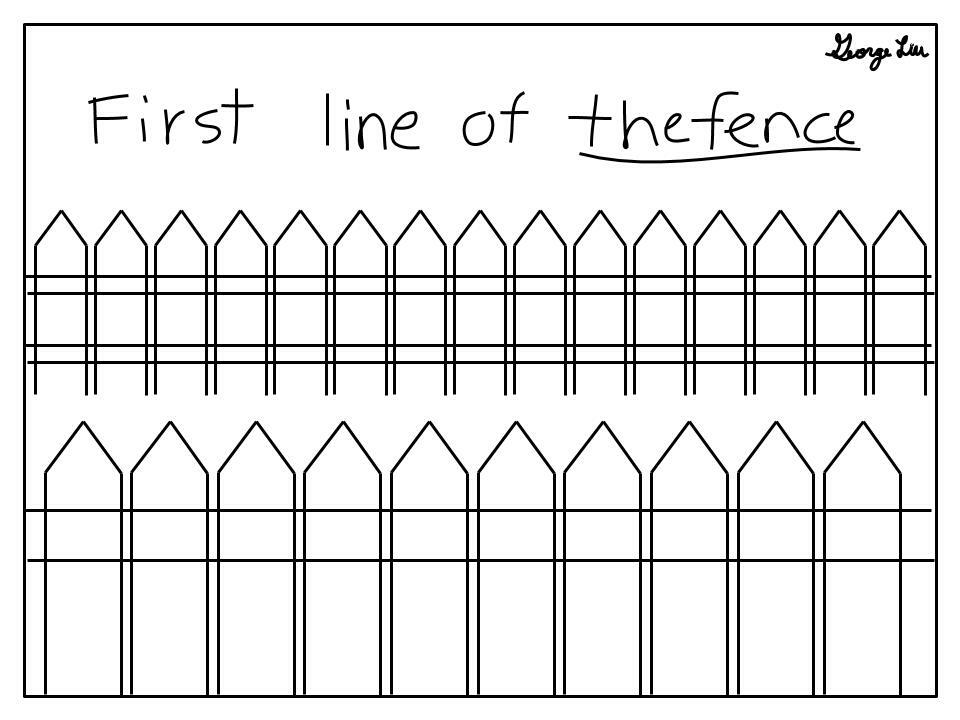 George Liu
First line of thefence